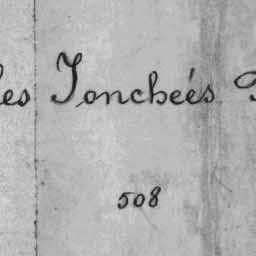 les Jonchées
508